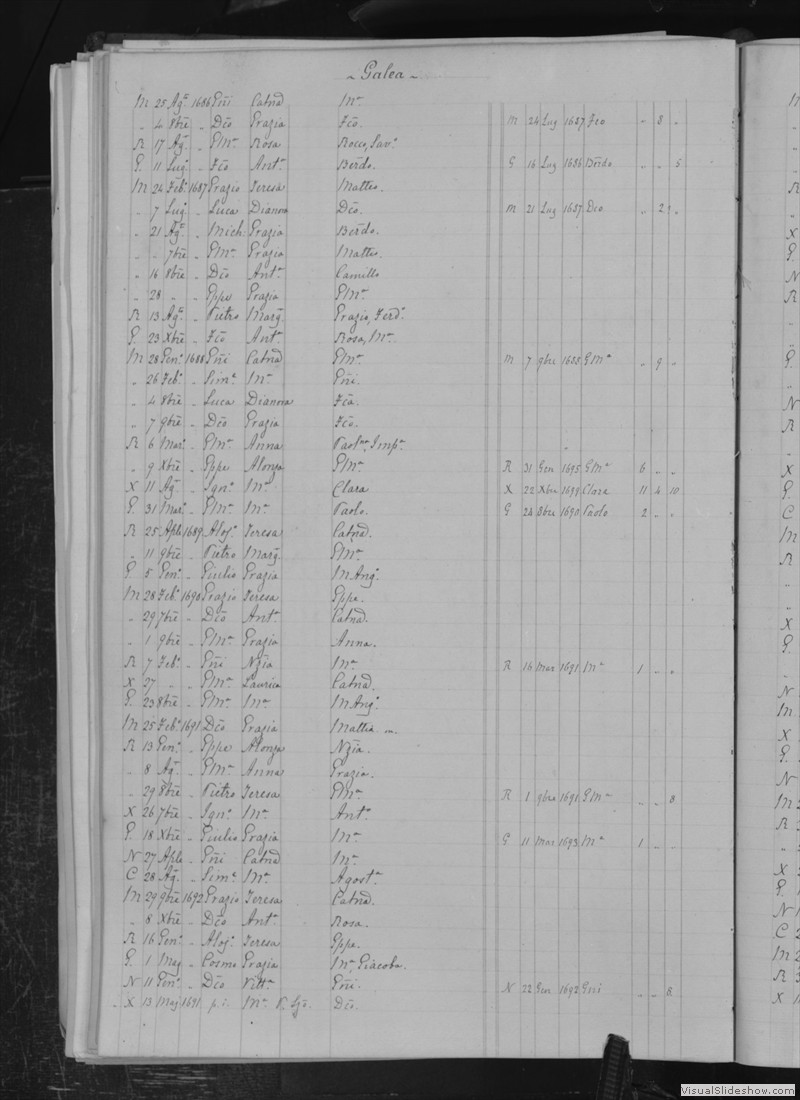 ~ Galea ~
M 25 Agº 1686 Gñi Catnã Mª
„ 4 8bre „ Dcõ Grazia Fcõ. M 24 Lug 1687 Fco „ 8 „
R 17 Agº „ GMª Rosa Rocco, Savº
G. 11 Lugº „ Fcõ Antª Berdo. G 16 Lug 1686 Berdo „ „ 5
M 24 Febº 1687 Grazio Teresa Matteo.
„ 7 Lugº „ Luca Dianora Dcõ. M 21 Lug 1687 Dco „ 2 „
„ 21 Agº „ Mich: Grazia Berdo.
„ „ 7bre „ GMª Grazia Matteo.
„ 16 8bre „ Dcõ Antª Camillo
„ 28 „ „ Gppe Grazia GMª
R 13 Agº „ Pietro Margª Grazio, Ferdº
G. 23 Xbre „ Fcõ Antª Rosa, Mª
M 28 Genº 1688 Gñi Catnã GMª M 7 9bre 1688 GMª „ 9 „
„ 26 Febº „ Simº Mª Gñi.
„ 4 8bre „ Luca Dianora Fcã.
„ 7 9bre „ Dcõ Grazia Fcõ.
R 6 Marº „ GMª Anna Paolna, Impª
„ 9 Xbre „ Gppe Alonza GMª R 31 Gen 1695 GMª 6 „ „
X 11 Agº „ Ignº Mª Clara X 22 Xbre 1699 Clara 11 4 10
G. 31 Marº „ GMª Mª Paolo. G 24 8bre 1690 Paolo 2 „ „
R 25 Aple 1689 Aloyº Teresa Catnã.
„ 11 9bre „ Pietro Margª GMª
G. 5 Genº „ Giulio Grazia M Angº
M 28 Febº 1690 Grazio Teresa Gppe.
„ 29 7bre „ Dcõ Antª Catnã.
„ 1 9bre „ GMª Grazia Anna.
R 7 Febº „ Gñi Nzia Mª R 16 Mar 1691 Mª 1 „ „
X 27 „ „ GMª Laurica Catnã.
G. 23 8bre „ GMª Mª M Angº
M 25 Febº 1691 Dcõ Grazia Mattia m.
R 13 Genº „ Gppe Alonza Nzia.
„ 8 Agº „ GMª Anna Grazia.
„ 29 8bre „ Pietro Teresa GMª R 1 9bre 1691 GMª „ „ 8
X 26 7bre „ Ignº Mª Antª
G. 18 Xbre „ Giulio Grazia Mª G 11 Mar 1693 Mª 1 „ „
N 27 Aple „ Gñi Catnã Mª
C 28 Agº „ Simº Mª Agostª
M 29 9bre 1692 Grazio Teresa Catnã.
„ 8 Xbre „ Dcõ Antª Rosa.
R 16 Genº „ Aloyº Teresa Gppa.
G. 1 Mag „ Cosmo Grazia Mª Giacoba.
N 11 Genº „ Dcõ Vittª Gñi. N 22 Gen 1692 Gñi „ „ 8
X 13 Mag 1691 p.i. Mª Dcõ.
VisualSlideshow.com